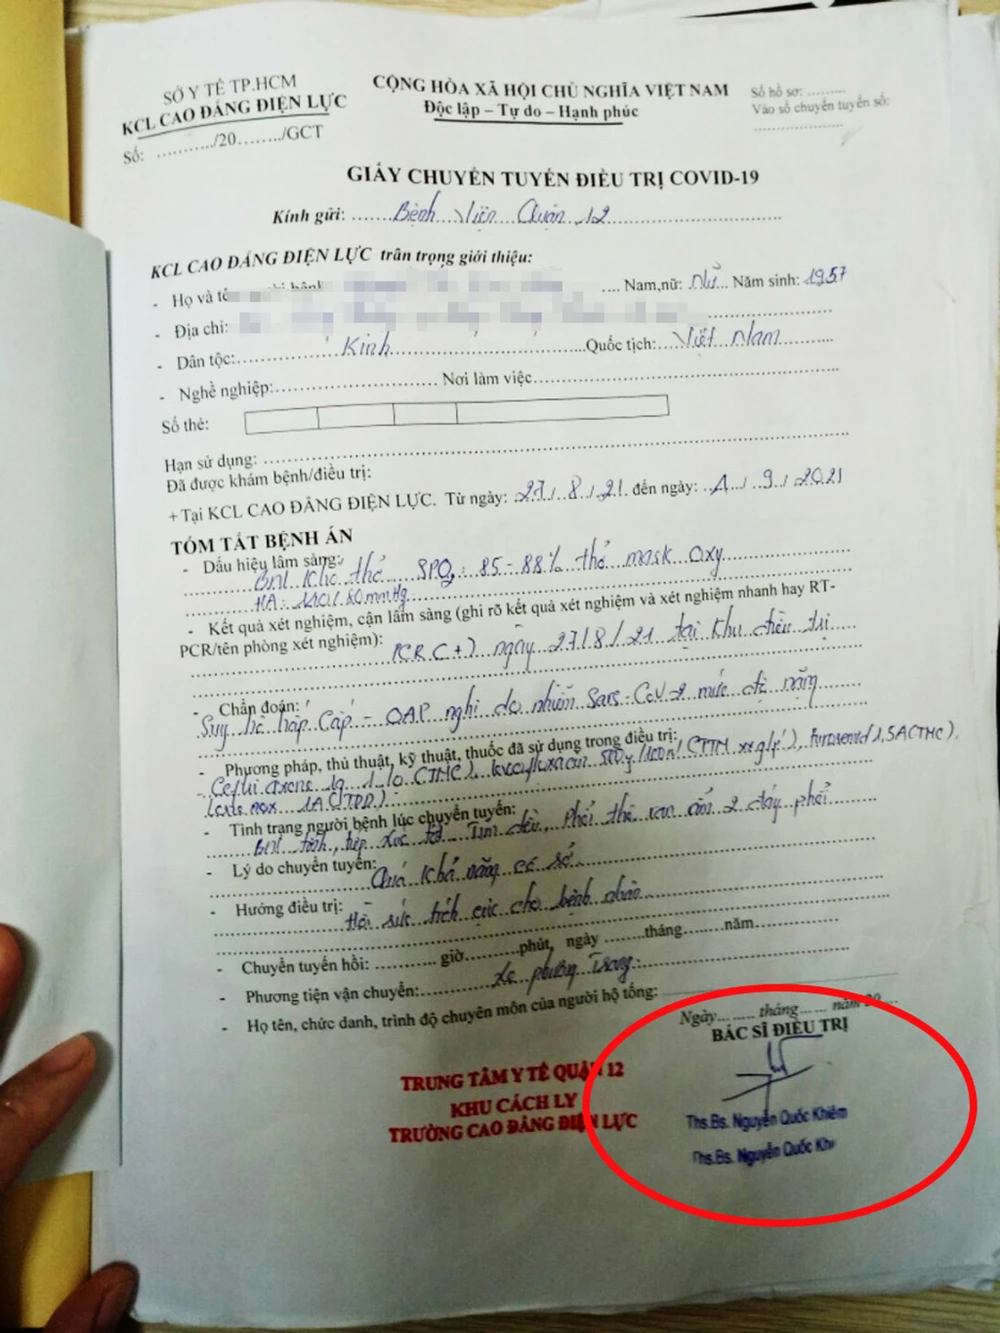 SỞ Y TẾ TP.HCM
KCL CAO ĐẲNG ĐIỆN LỰC
Số: ........../20......../GCT
CỘNG HÒA XÃ HỘI CHỦ NGHĨA VIỆT NAM
Độc lập – Tự do – Hạnh phúc
Số hồ sơ: .........
Vào sổ chuyển tuyến số:
....................
GIẤY CHUYỂN TUYẾN ĐIỀU TRỊ COVID-19
Kính gửi: ....... Bệnh Viện Quận 12
KCL CAO ĐẲNG ĐIỆN LỰC trân trọng giới thiệu:
- Họ và tê .... Nam,nữ: Nữ... Năm sinh: 1957
- Địa chỉ:
- Dân tộc: Kinh Quốc tịch: Việt Nam
- Nghề nghiệp: Nơi làm việc
Số thẻ:
Hạn sử dụng:
Đã được khám bệnh/điều trị:
+ Tại KCL CAO ĐẲNG ĐIỆN LỰC. Từ ngày: 27/8/21 đến ngày: 1/9/2021
TÓM TẮT BỆNH ÁN
- Dấu hiệu lâm sàng:
BN khó thở, SPO2: 85-88% thở mask oxy
HA: 140/80mmHg
- Kết quả xét nghiệm, cận lâm sàng (ghi rõ kết quả xét nghiệm và xét nghiệm nhanh hay RT-
PCR/tên phòng xét nghiệm): PCR (+) ngày 27/8/21 tại khu điều trị
- Chẩn đoán:
Suy hô hấp cấp - OAP nghi do nhiễm Sars-CoV-2 mức độ nặng
- Phương pháp, thủ thuật, kỹ thuật, thuốc đã sử dụng trong điều trị:
1A (TDD)
- Tình trạng người bệnh lúc chuyển tuyến:
BN tỉnh, tiếp xúc tốt Tim đều, Phổi thô ran ẩm 2 đáy phổi
- Lý do chuyển tuyến: Quá khả năng cơ sở
- Hướng điều trị: Hồi sức tích cực cho bệnh nhân
- Chuyển tuyến hồi: ............ giờ..........phút, ngày ........tháng........năm............
- Phương tiện vận chuyển: Xe phương Trang
- Họ tên, chức danh, trình độ chuyên môn của người hộ tống:
Ngày........ tháng...... năm 20....
BÁC SĨ ĐIỀU TRỊ
TRUNG TÂM Y TẾ QUẬN 12
KHU CÁCH LY
TRƯỜNG CAO ĐẲNG ĐIỆN LỰC
Ths.Bs. Nguyễn Quốc Khiêm
Ths.Bs. Nguyễn Quốc Khi